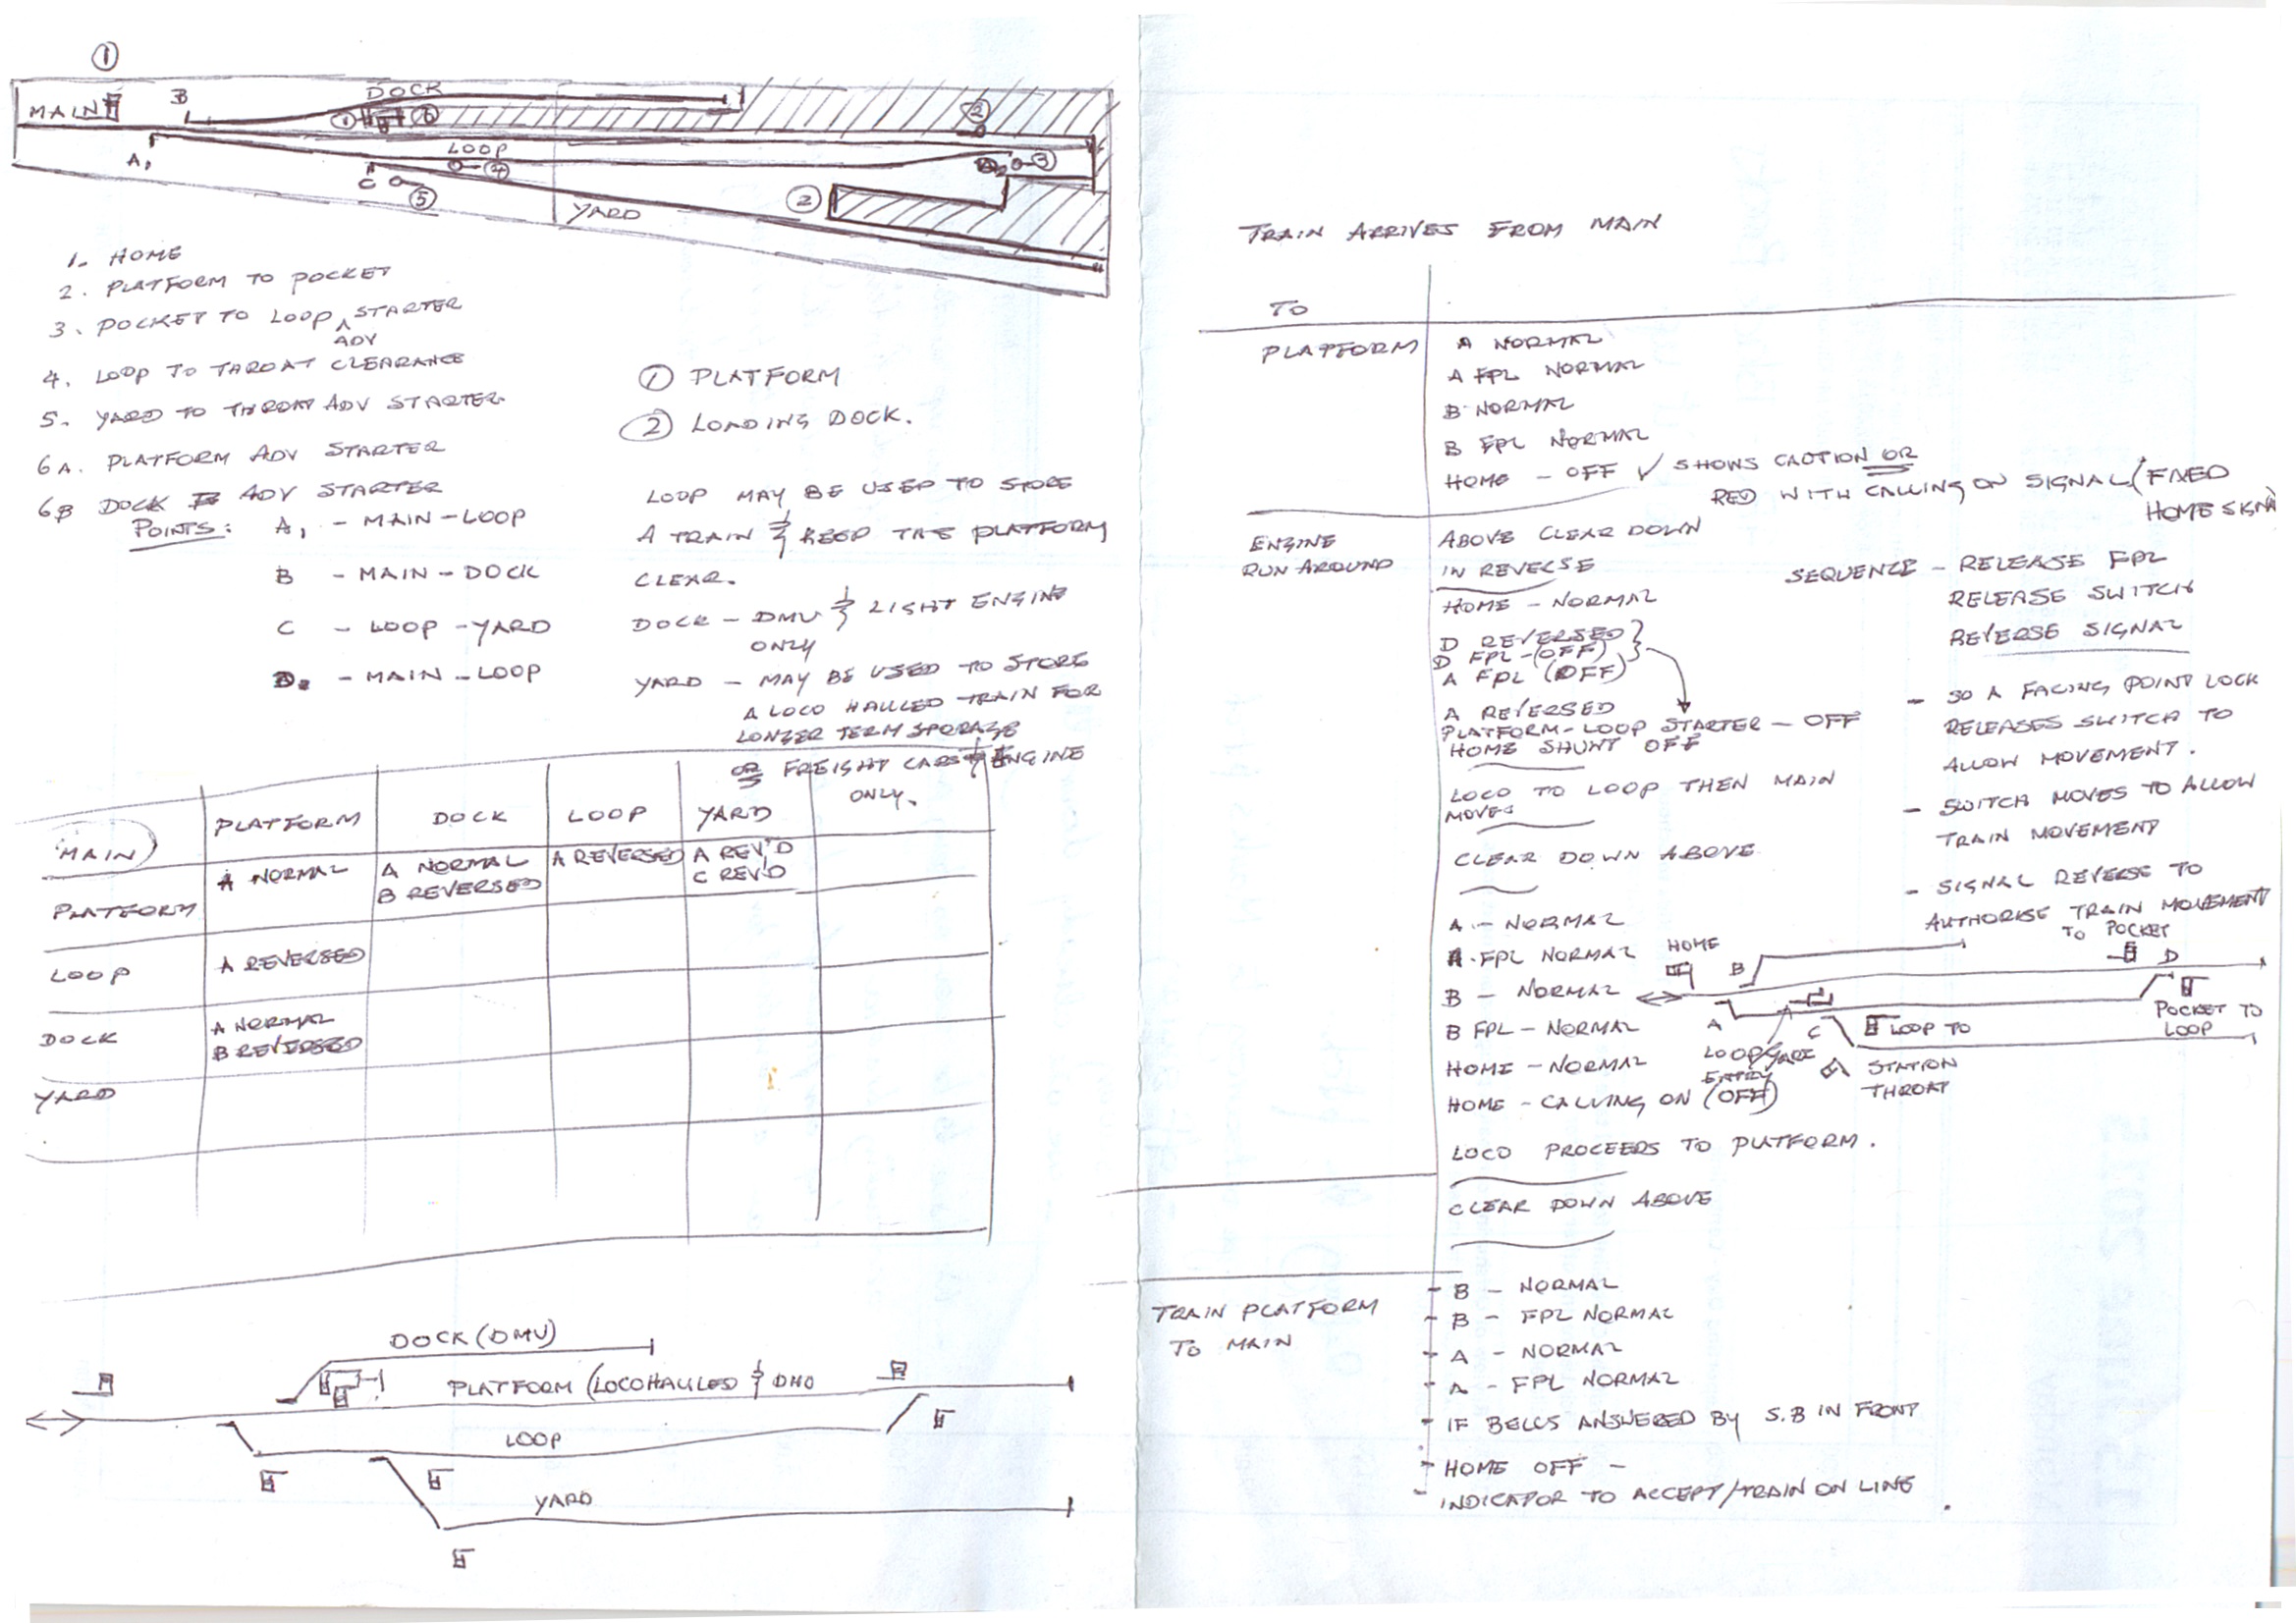 ①
MAIN
B
DOCK
① ⑥
②
A₁
LOOP
④
③
C
⑤
YARD
②
1. HOME
2. PLATFORM TO POCKET
3. POCKET TO LOOP ADV STARTER
4. LOOP TO THROAT CLEARANCE
5. YARD TO THROAT ADV STARTER
6A. PLATFORM ADV STARTER
6B DOCK ADV STARTER
POINTS:
A₁ - MAIN-LOOP
B - MAIN-DOCK
C - LOOP-YARD
D - MAIN-LOOP
① PLATFORM
② LOADING DOCK.
LOOP MAY BE USED TO STORE
A TRAIN & KEEP THE PLATFORM
CLEAR.
DOCK - DMU & LIGHT ENGINE
ONLY
YARD - MAY BE USED TO STORE
A LOCO HAULLED TRAIN FOR
LONGER TERM SPORAGE
OR FREIGHT CARS & ENGINE
ONLY.
MAIN
PLATFORM
DOCK
LOOP
YARD
PLATFORM
A NORMAL
A NORMAL
B REVERSED
A REVERSED
A REV'D
C REV'D
LOOP
A REVERSED
DOCK
A NORMAL
B REVERSED
YARD
DOCK (DMU)
PLATFORM (LOCOHAULED &
LOOP
YARD
TRAIN ARRIVES FROM MAIN
TO
PLATFORM
A NORMAL
A FPL NORMAL
B NORMAL
B FPL NORMAL
HOME - OFF ✓ SHOWS CAUTION OR
RED WITH CALLING ON SIGNAL (FIXED
HOME SIGN
ENGINE
RUN AROUND
ABOVE CLEAR DOWN
IN REVERSE
HOME - NORMAL
D REVERSED
D FPL - (OFF)
A FPL (OFF)
A REVERSED
PLATFORM-LOOP STARTER - OFF
HOME SHUNT OFF
LOCO TO LOOP THEN MAIN
MOVES
CLEAR DOWN ABOVE
A - NORMAL
A - FPL NORMAL
B - NORMAL
B FPL - NORMAL
HOME - NORMAL
HOME - CALLING ON (OFF)
LOCO PROCEEDS TO PLATFORM.
CLEAR DOWN ABOVE
SEQUENCE - RELEASE FPL
RELEASE SWITCH
REVERSE SIGNAL
- SO A FACING POINT LOCK
RELEASES SWITCH TO
ALLOW MOVEMENT.
- SWITCH MOVES TO ALLOW
TRAIN MOVEMENT
- SIGNAL REVERSE TO
AUTHORISE TRAIN MOVEMENT
TO POCKET
HOME
B
D
A
C
POCKET TO
LOOP
LOOP TO
STATION
THROAT
LOOP/YARD
ENTRY
TRAIN PLATFORM
TO MAIN
B - NORMAL
B - FPL NORMAL
A - NORMAL
A - FPL NORMAL
IF BELLS ANSWERED BY S.B IN FRONT
HOME OFF -
INDICATOR TO ACCEPT/TRAIN ON LINE